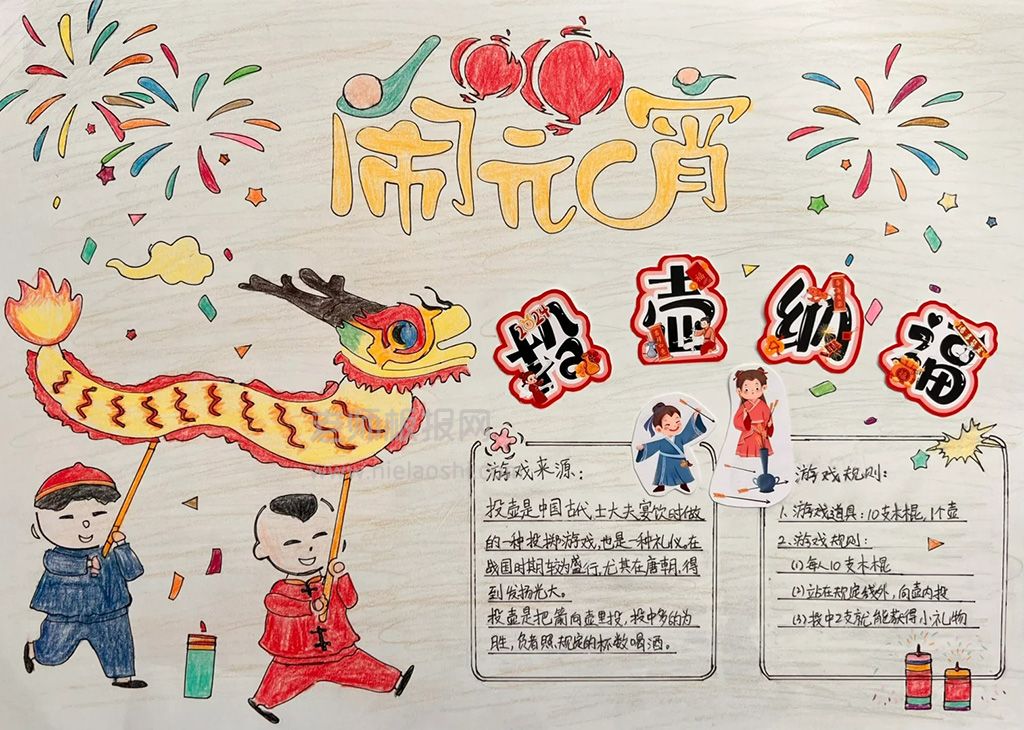 闹元宵
投壶纳福
2024
游戏来源:
投壶是中国古代士大夫宴饮时做
的一种投掷游戏,也是一种礼仪。在
战国时期较为盛行,尤其在唐朝,得
到发扬光大。
投壶是把箭向壶里投,投中多的为
胜,负者照规定的杯数喝酒。
游戏规则:
1、游戏道具:10支木棍,1个壶
2、游戏规则:
(1)每人10支木棍
(2)站在规定线外,向壶内投
(3)投中2支就能获得小礼物